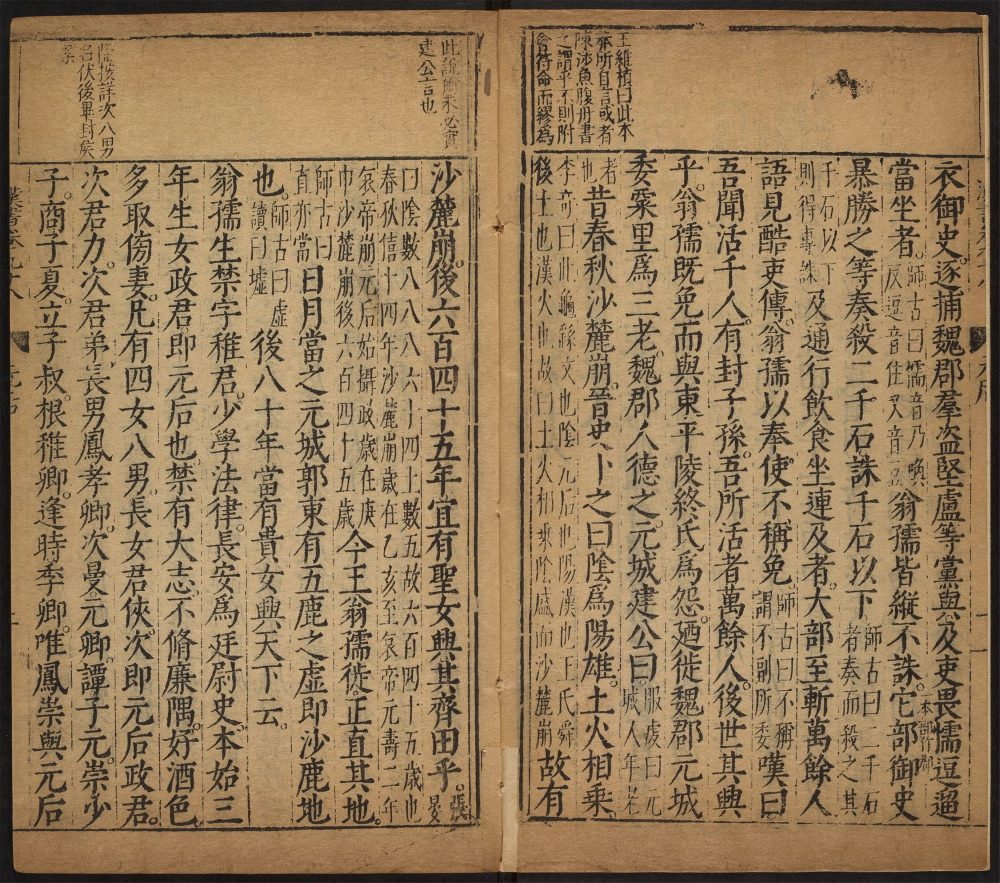 王維楨曰此本
莽所自言或者
陳涉魚腹丹書
之謂乎不則附
會符命而繆為
衣御史逐捕魏郡羣盜堅盧等黨與及吏畏懦逗遛
當坐者師古曰懦音乃喚反逗音住又音豆翁孺皆縱不誅它部御史
暴勝之等奏殺二千石誅千石以下師古曰二千石者奏而殺之其
千石以下則得專誅及通行飲食坐連及者大部至斬萬餘人
語見酷吏傳翁孺以奉使不稱免師古曰不稱謂不副所委嘆曰
吾聞活千人有封子孫吾所活者萬餘人後世其興
乎翁孺既免而與東平陵終氏為怨廼徙魏郡元城
委粟里為三老魏郡人德之元城建公曰服虔曰元城人年老
者也昔春秋沙麓崩晉史卜之曰陰為陽雄土火相乘故有
李奇曰此龜繇文也陰元后也陽漢也王氏舜後土也漢火也故曰土火相乘陰盛而沙麓崩
此說爾未必實
建公言也
陰揆詳次八男
名伏後畢封侯
案
沙麓崩後六百四十五年宜有聖女興其齊田乎張晏
曰陰數八八八六十四土數五故六百四十五歲也春秋僖十四年沙麓崩歲在乙亥至哀帝元壽二年
哀帝崩元后始攝政歲在庚申沙麓崩後六百四十五歲今王翁孺徙正直其地
師古曰直亦當日月當之元城郭東有五鹿之虛即沙鹿地
也師古曰虛讀曰墟後八十年當有貴女興天下云
翁孺生禁字稚君少學法律長安為廷尉史本始三
年生女政君即元后也禁有大志不脩廉隅好酒色
多取傍妻凡有四女八男長女君俠次即元后政君
次君力次君弟長男鳳孝卿次曼元卿譚子元崇少
子商子夏立子叔根稚卿逢時季卿唯鳳崇與元后